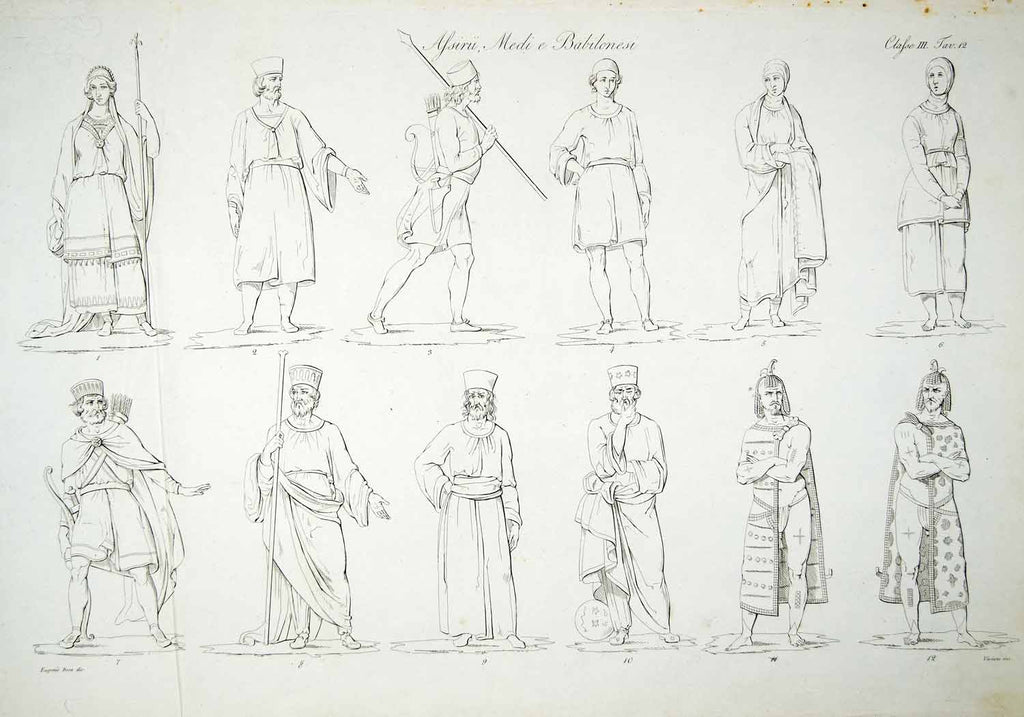 Assirii, Medi e Babilonesi
Classe III. Tav. 12
1
2
3
4
5
6
7
8
9
10
11
12
Eugenio Bosa dis.